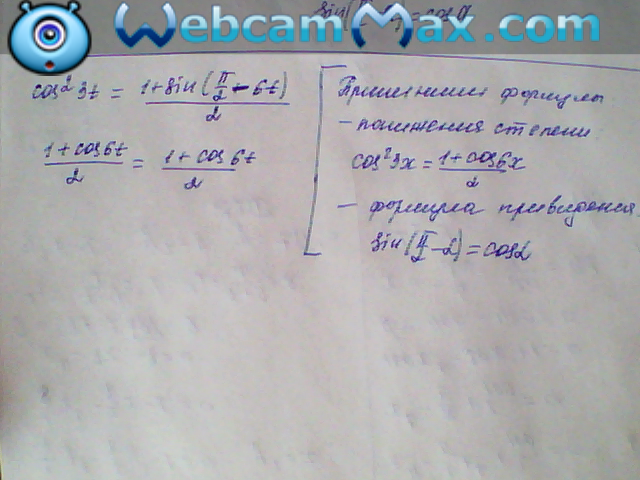 WebcamMax.com
sin(π/2 - α) = cos α
cos² 3t = (1 + sin(π/2 - 6t))/2
(1 + cos 6t)/2 = (1 + cos 6t)/2
Применили формулы
- понижения степени
cos² 3x = (1 + cos 6x)/2
- формула приведения
sin(π/2 - α) = cos α